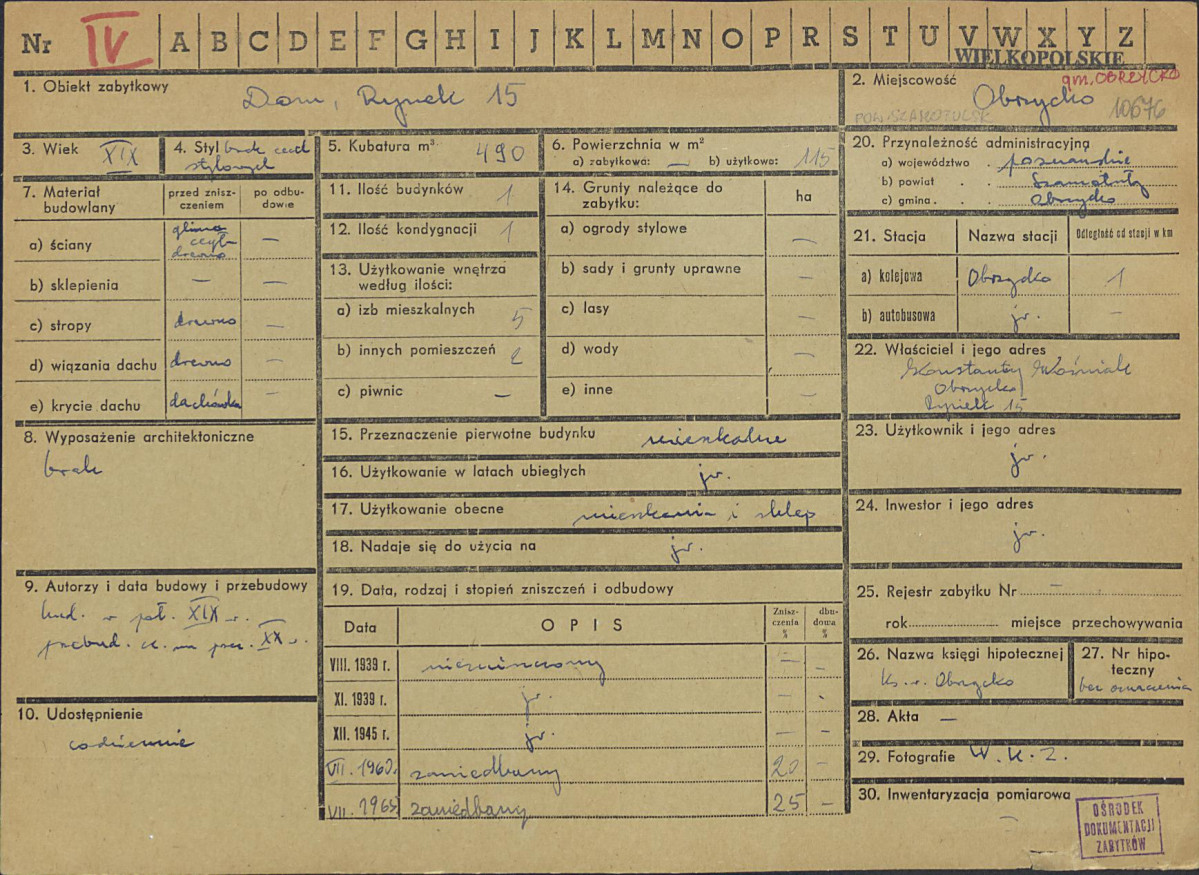 Nr IV A B C D E F G H I J K L M N O P R S T U V W X Y Z
WIELKOPOLSKIE
1. Obiekt zabytkowy
Dom, Rynek 15
2. Miejscowość
gm. OBRZYCKO
Obrzycko
10676
3. Wiek XIX
4. Styl brak cech
stylowych
5. Kubatura m³ 490
6. Powierzchnia w m²
a) zabytkowa: — b) użytkowa: 115
7. Materiał
budowlany
przed znisz-
czeniem
po odbu-
dowie
a) ściany
glina
cegła
drewno
—
b) sklepienia — —
c) stropy drewno —
d) wiązania dachu drewno —
e) krycie dachu dachówka —
8. Wyposażenie architektoniczne
brak
9. Autorzy i data budowy i przebudowy
bud. w poł. XIX w.
przebud. XX w.
10. Udostępnienie
codziennie
11. Ilość budynków 1
12. Ilość kondygnacji 1
13. Użytkowanie wnętrza
według ilości:
a) izb mieszkalnych 5
b) innych pomieszczeń 2
c) piwnic —
14. Grunty należące do
zabytku:
ha
a) ogrody stylowe —
b) sady i grunty uprawne —
c) lasy —
d) wody —
e) inne —
15. Przeznaczenie pierwotne budynku mieszkalne
16. Użytkowanie w latach ubiegłych jw.
17. Użytkowanie obecne mieszkania i sklep
18. Nadaje się do użycia na jw.
19. Data, rodzaj i stopień zniszczeń i odbudowy
Data
OPIS
Znisz-
czenia
%
dbu-
dowa
%
VIII. 1939 r. niezniszczony — —
XI. 1939 r. jw. — -
XII. 1945 r. jw. — —
VII. 1960. zaniedbany 20 —
VII. 1965 zaniedbany 25 —
20. Przynależność administracyjna
a) województwo poznańskie
b) powiat . . Szamotuły
c) gmina . . Obrzycko
21. Stacja
Nazwa stacji
Odległość od stacji w km
a) kolejowa Obrzycko 1
b) autobusowa jw. —
22. Właściciel i jego adres
Konstanty Woźniak
Obrzycko
Rynek 15
23. Użytkownik i jego adres
jw.
24. Inwestor i jego adres
jw.
25. Rejestr zabytku Nr —
rok miejsce przechowywania
26. Nazwa księgi hipotecznej
Ks. w. Obrzycko
27. Nr hipo-
teczny
bez oznaczenia
28. Akta —
29. Fotografie W. K. Z.
30. Inwentaryzacja pomiarowa
—
OŚRODEK
DOKUMENTACJI
ZABYTKÓW